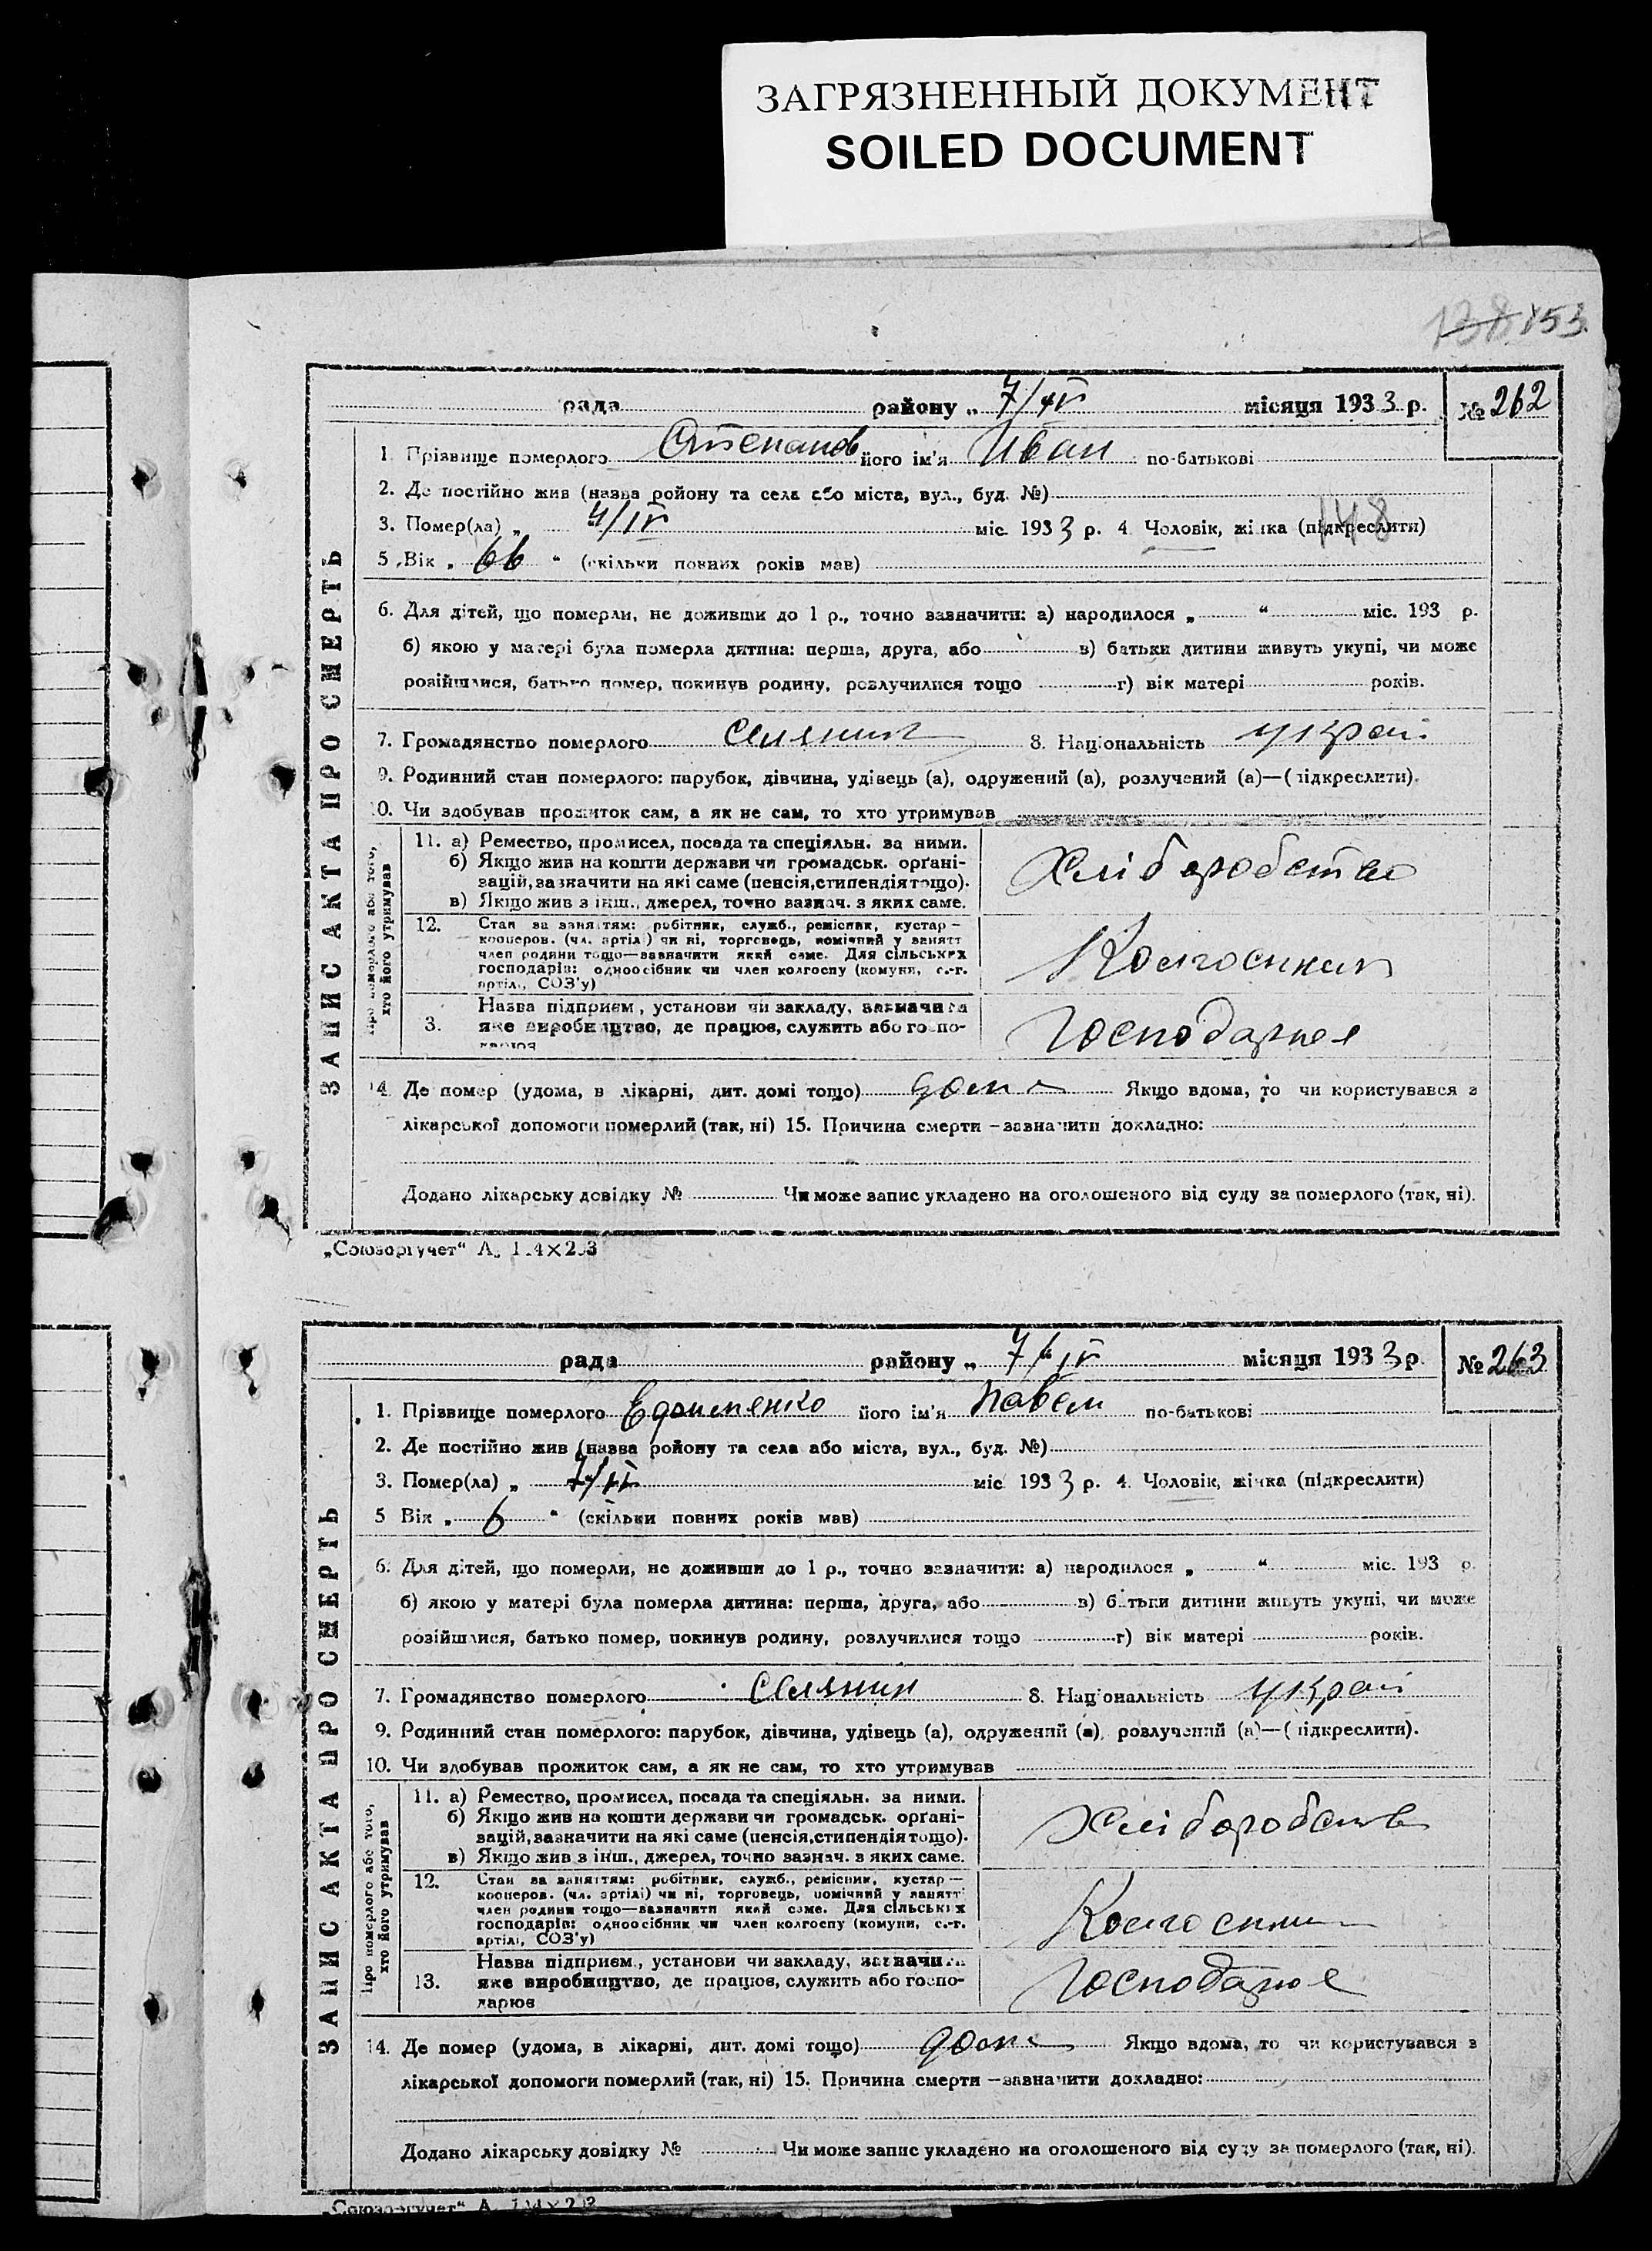 ЗАГРЯЗНЕННЫЙ ДОКУМЕНТ
SOILED DOCUMENT
138 153
рада району „ 7/IV місяця 1933 р. № 262
ЗАПИС АКТА ПРО СМЕРТЬ
1. Прізвище померлого Степанов його ім'я Иван по-батькові
2. Де постійно жив (назва ройону та села або міста, вул., буд. №)
148
3. Помер(ла) „ 4/IV міс. 1933 р. 4. Чоловік, жінка (підкреслити)
5. Вік „ 66 “ (скільки повних років мав)
6. Для дітей, що померли, не доживши до 1 р., точно зазначити: а) народилося „ “ міс. 193 р.
б) якою у матері була померла дитина: перша, друга, або в) батьки дитини живуть укупі, чи може
розійшлися, батько помер, покинув родину, розлучилися тощо г) вік матері років.
7. Громадянство померлого селянин 8. Національність украї
9. Родинний стан померлого: парубок, дівчина, удівець (а), одружений (а), розлучений (а)—(підкреслити).
10. Чи здобував прожиток сам, а як не сам, то хто утримував
Про померлого або того, хто його утримував
11. а) Ремество, промисел, посада та спеціяльн. за ними.
б) Якщо жив на кошти держави чи громадськ. орґані-
зацій, зазначити на які саме (пенсія, стипендія тощо).
в) Якщо жив з інш., джерел, точно зазнач. з яких саме.
Хліборобство
12. Стан за заняттям: робітник, служб., ремісник, кустар—
кооперов. (чл. артілі) чи ні, торговець, помічний у занятті
член родини тощо—зазначити який саме. Для сільських
господарів: одноосібник чи член колгоспу (комуни, с.-г.
артілі, СОЗ'у)
Колгоспник
3. Назва підприєм., установи чи закладу, зазначити
яке виробництво, де працює, служить або госпо-
дарює
Господарює
14. Де помер (удома, в лікарні, дит. домі тощо) дома Якщо вдома, то чи користувався з
лікарської допомоги померлий (так, ні) 15. Причина смерти—зазначити докладно:
Додано лікарську довідку № Чи може запис укладено на оголошеного від суду за померлого (так, ні).
„Союзоргучет“
рада району „ 7/IV місяця 1933 р. № 263
ЗАПИС АКТА ПРО СМЕРТЬ
1. Прізвище померлого його ім'я Павел по-батькові
2. Де постійно жив (назва ройону та села або міста, вул., буд. №)
3. Помер(ла) „ 7/IV міс. 1933 р. 4. Чоловік, жінка (підкреслити)
5 Вік „ 6 “ (скільки повних років мав)
6. Для дітей, що померли, не доживши до 1 р., точно зазначити: а) народилося „ “ міс. 193 р.
б) якою у матері була померла дитина: перша, друга, або в) батьки дитини живуть укупі, чи може
розійшлися, батько помер, покинув родину, розлучилися тощо г) вік матері років.
7. Громадянство померлого Селянин 8. Національність украї
9. Родинний стан померлого: парубок, дівчина, удівець (а), одружений (а), розлучений (а)—(підкреслити).
10. Чи здобував прожиток сам, а як не сам, то хто утримував
Про померлого або того, хто його утримував
11. а) Ремество, промисел, посада та спеціяльн. за ними.
б) Якщо жив на кошти держави чи громадськ. орґані-
зацій, зазначити на які саме (пенсія, стипендія тощо).
в) Якщо жив з інш., джерел, точно зазнач. з яких саме.
Хліборобств
12. Стан за заняттям: робітник, служб., ремісник, кустар—
кооперов. (чл. артілі) чи ні, торговець, помічний у занятті
член родини тощо—зазначити який саме. Для сільських
господарів: одноосібник чи член колгоспу (комуни, с.-г.
артілі, СОЗ'у)
Колгоспник
13. Назва підприєм., установи чи закладу, зазначити
яке виробництво, де працює, служить або госпо-
дарює
Господарює
14. Де помер (удома, в лікарні, дит. домі тощо) дома Якщо вдома, то чи користувався з
лікарської допомоги померлий (так, ні) 15. Причина смерти—зазначити докладно:
Додано лікарську довідку № Чи може запис укладено на оголошеного від суду за померлого (так, ні).
„Союзоргучет“